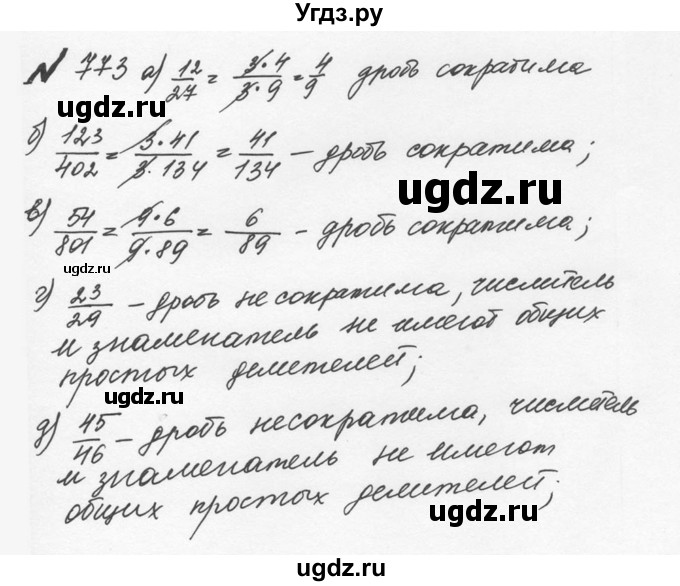 Угдз.ру
№ 773 а) 12/27 = 3·4/3·9 = 4/9 дробь сократима
б) 123/402 = 3·41/3·134 = 41/134 – дробь сократима;
ugdz.ru
в) 54/801 = 9·6/9·89 = 6/89 – дробь сократима;
ugdz.ru
г) 23/29 – дробь не сократима, числитель
и знаменатель не имеют общих
простых делителей;
ugdz.ru
д) 45/46 – дробь несократима, числитель
и знаменатель не имеют
общих простых делителей;
ugdz.ru
ugdz.ru